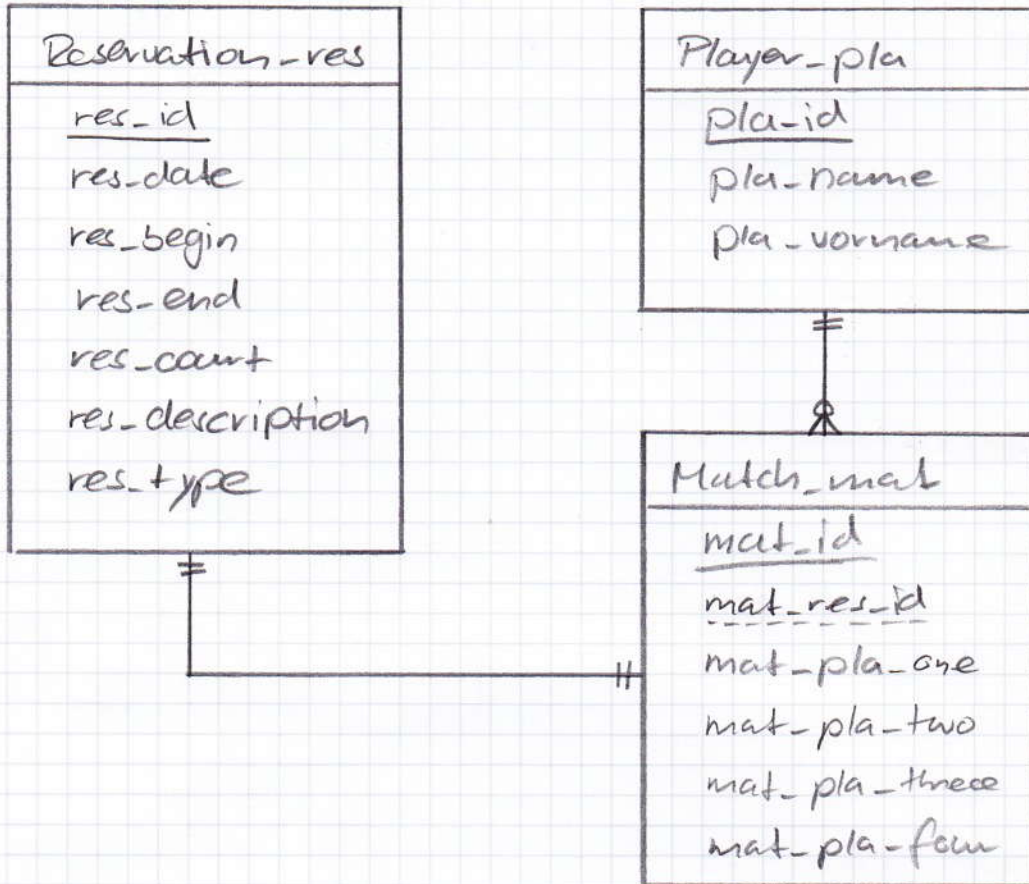 Reservation_res
res_id
res_date
res_begin
res_end
res_court
res_description
res_type
Player_pla
pla_id
pla_name
pla_vorname
Match_mat
mat_id
mat_res_id
mat_pla_one
mat_pla_two
mat_pla_three
mat_pla_four